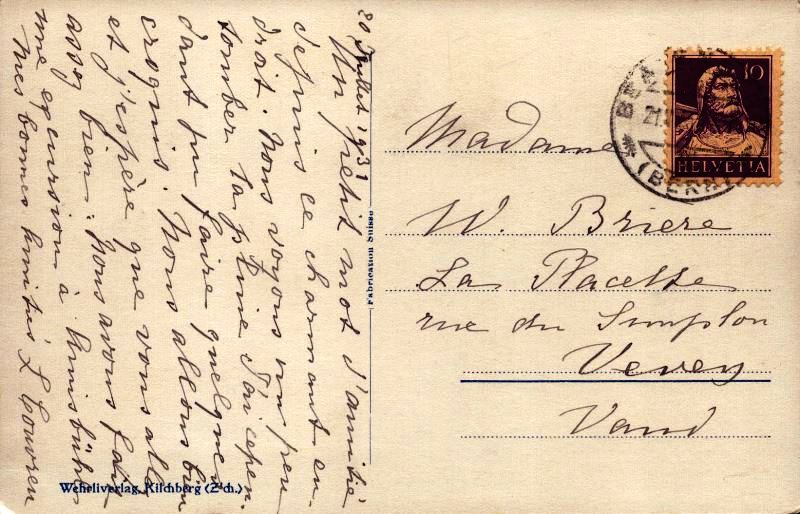 20 Juillet 1931
Un petit mot d'amitié
depuis ce charmant en-
droit. Nous voyons un peu
tomber la pluie. J'ai cepen-
dant pu faire quelques
croquis. Nous allons bien
et j'espère que vous allez
assez bien. Nous avons fait
une excursion à
Mes bonnes amitiés L
Fabrication Suisse
Wehrliverlag, Kilchberg (Z'ch.)
10
HELVETIA
(BERN)
Madame
W. Briere
La Placette
rue du Simplon
Vevey
Vaud